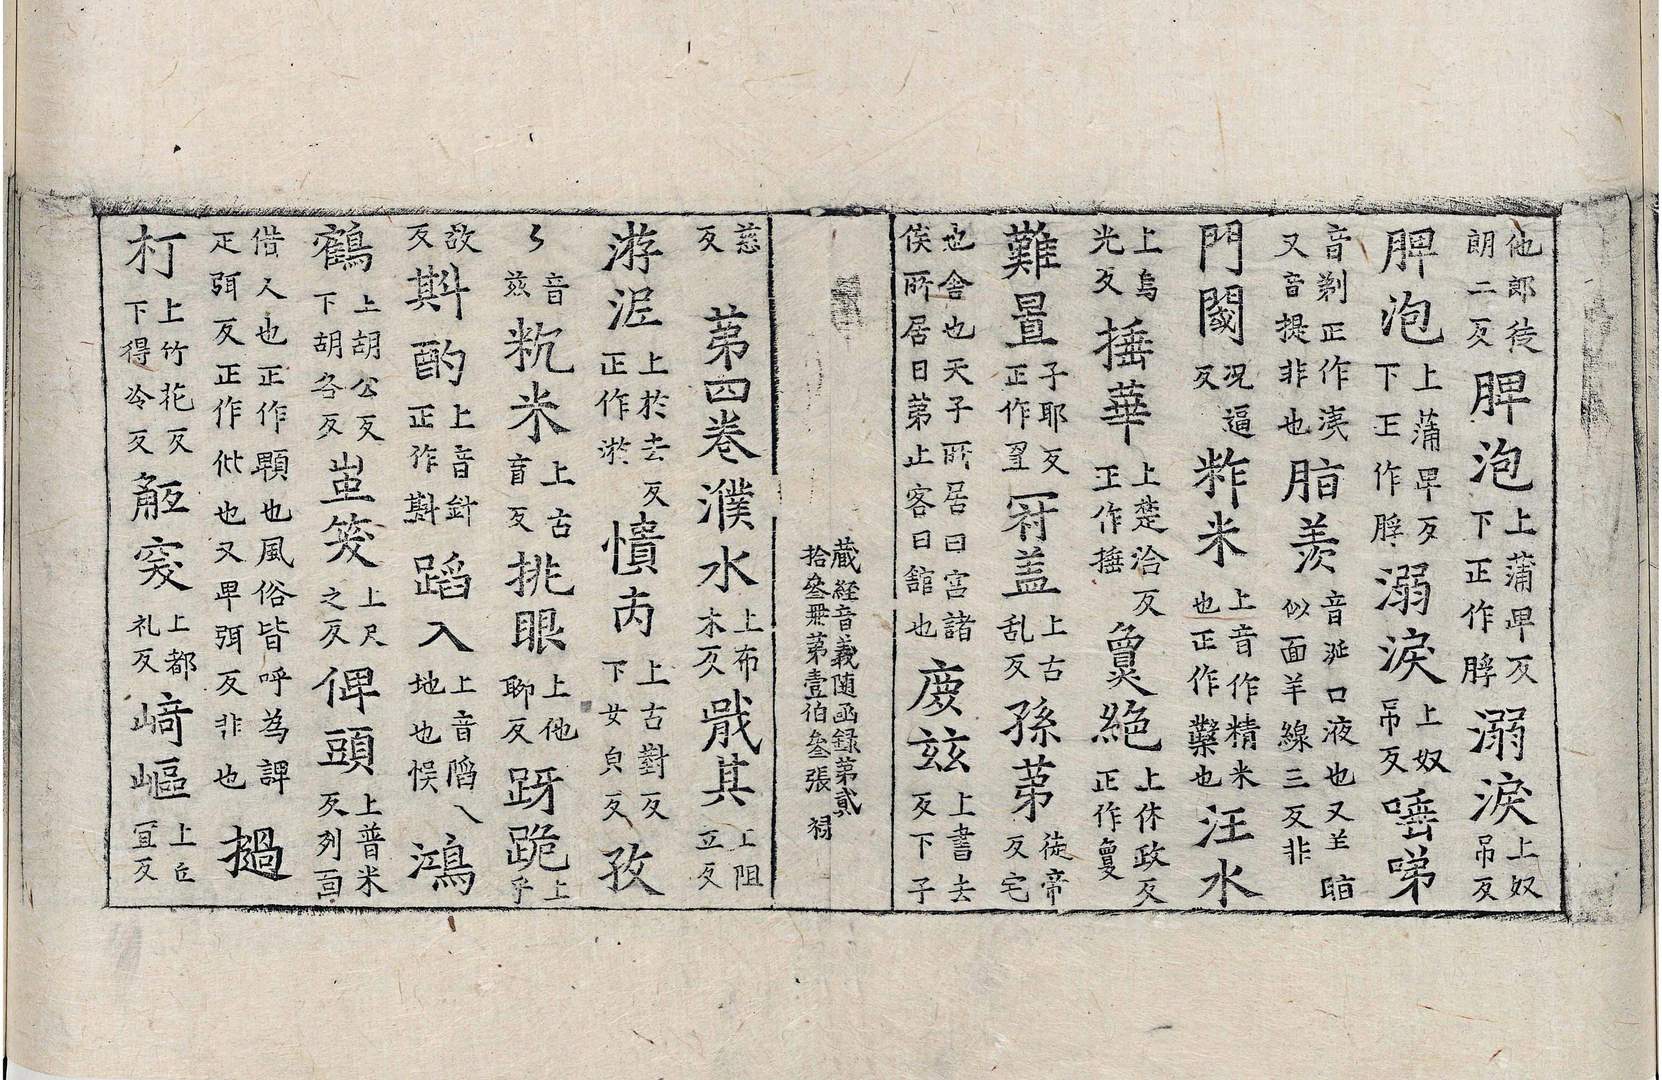 他郎徒朗二反脾泡上蒲卑反下正作脬溺淚上奴吊反
脾泡上蒲卑反下正作脬溺淚上奴吊反唾唏
音剃正作洟又音提非也脂羡音涎口液也又羊䀋似面羊線三反非
門閿况逼反粰米上音作精米也正作糳也汪水
上烏光反捶華上楚洽反正作捶敻絕上休政反正作敻
難量子耶反正作罝冠盖上古乱反孫苐徒帝反宅
也舍也天子所居曰宮諸侯所居曰苐止客曰舘也廋玆上書去反下子
藏經音義隨函録苐貳拾叄冊苐壹伯叄張 禂
慈反 苐四卷濮水上布木反戢其上阻立反
游泥上於去反正作淤憒丙上古對反下女皃反孜
〻音兹粇米上古盲反挑眼上他聊反跨跪上乎
故反斟酌上音針正作斠蹈入上音滔入地也悮鴻
鶴上胡公反下胡各反蚩笑上尺之反俾頭上普米反列反
借人也正作顆也風俗皆呼為諢疋弭反正作仳也又卑弭反非也撾
打上竹花反下得冷反觝突上都礼反﨑嶇上丘冝反